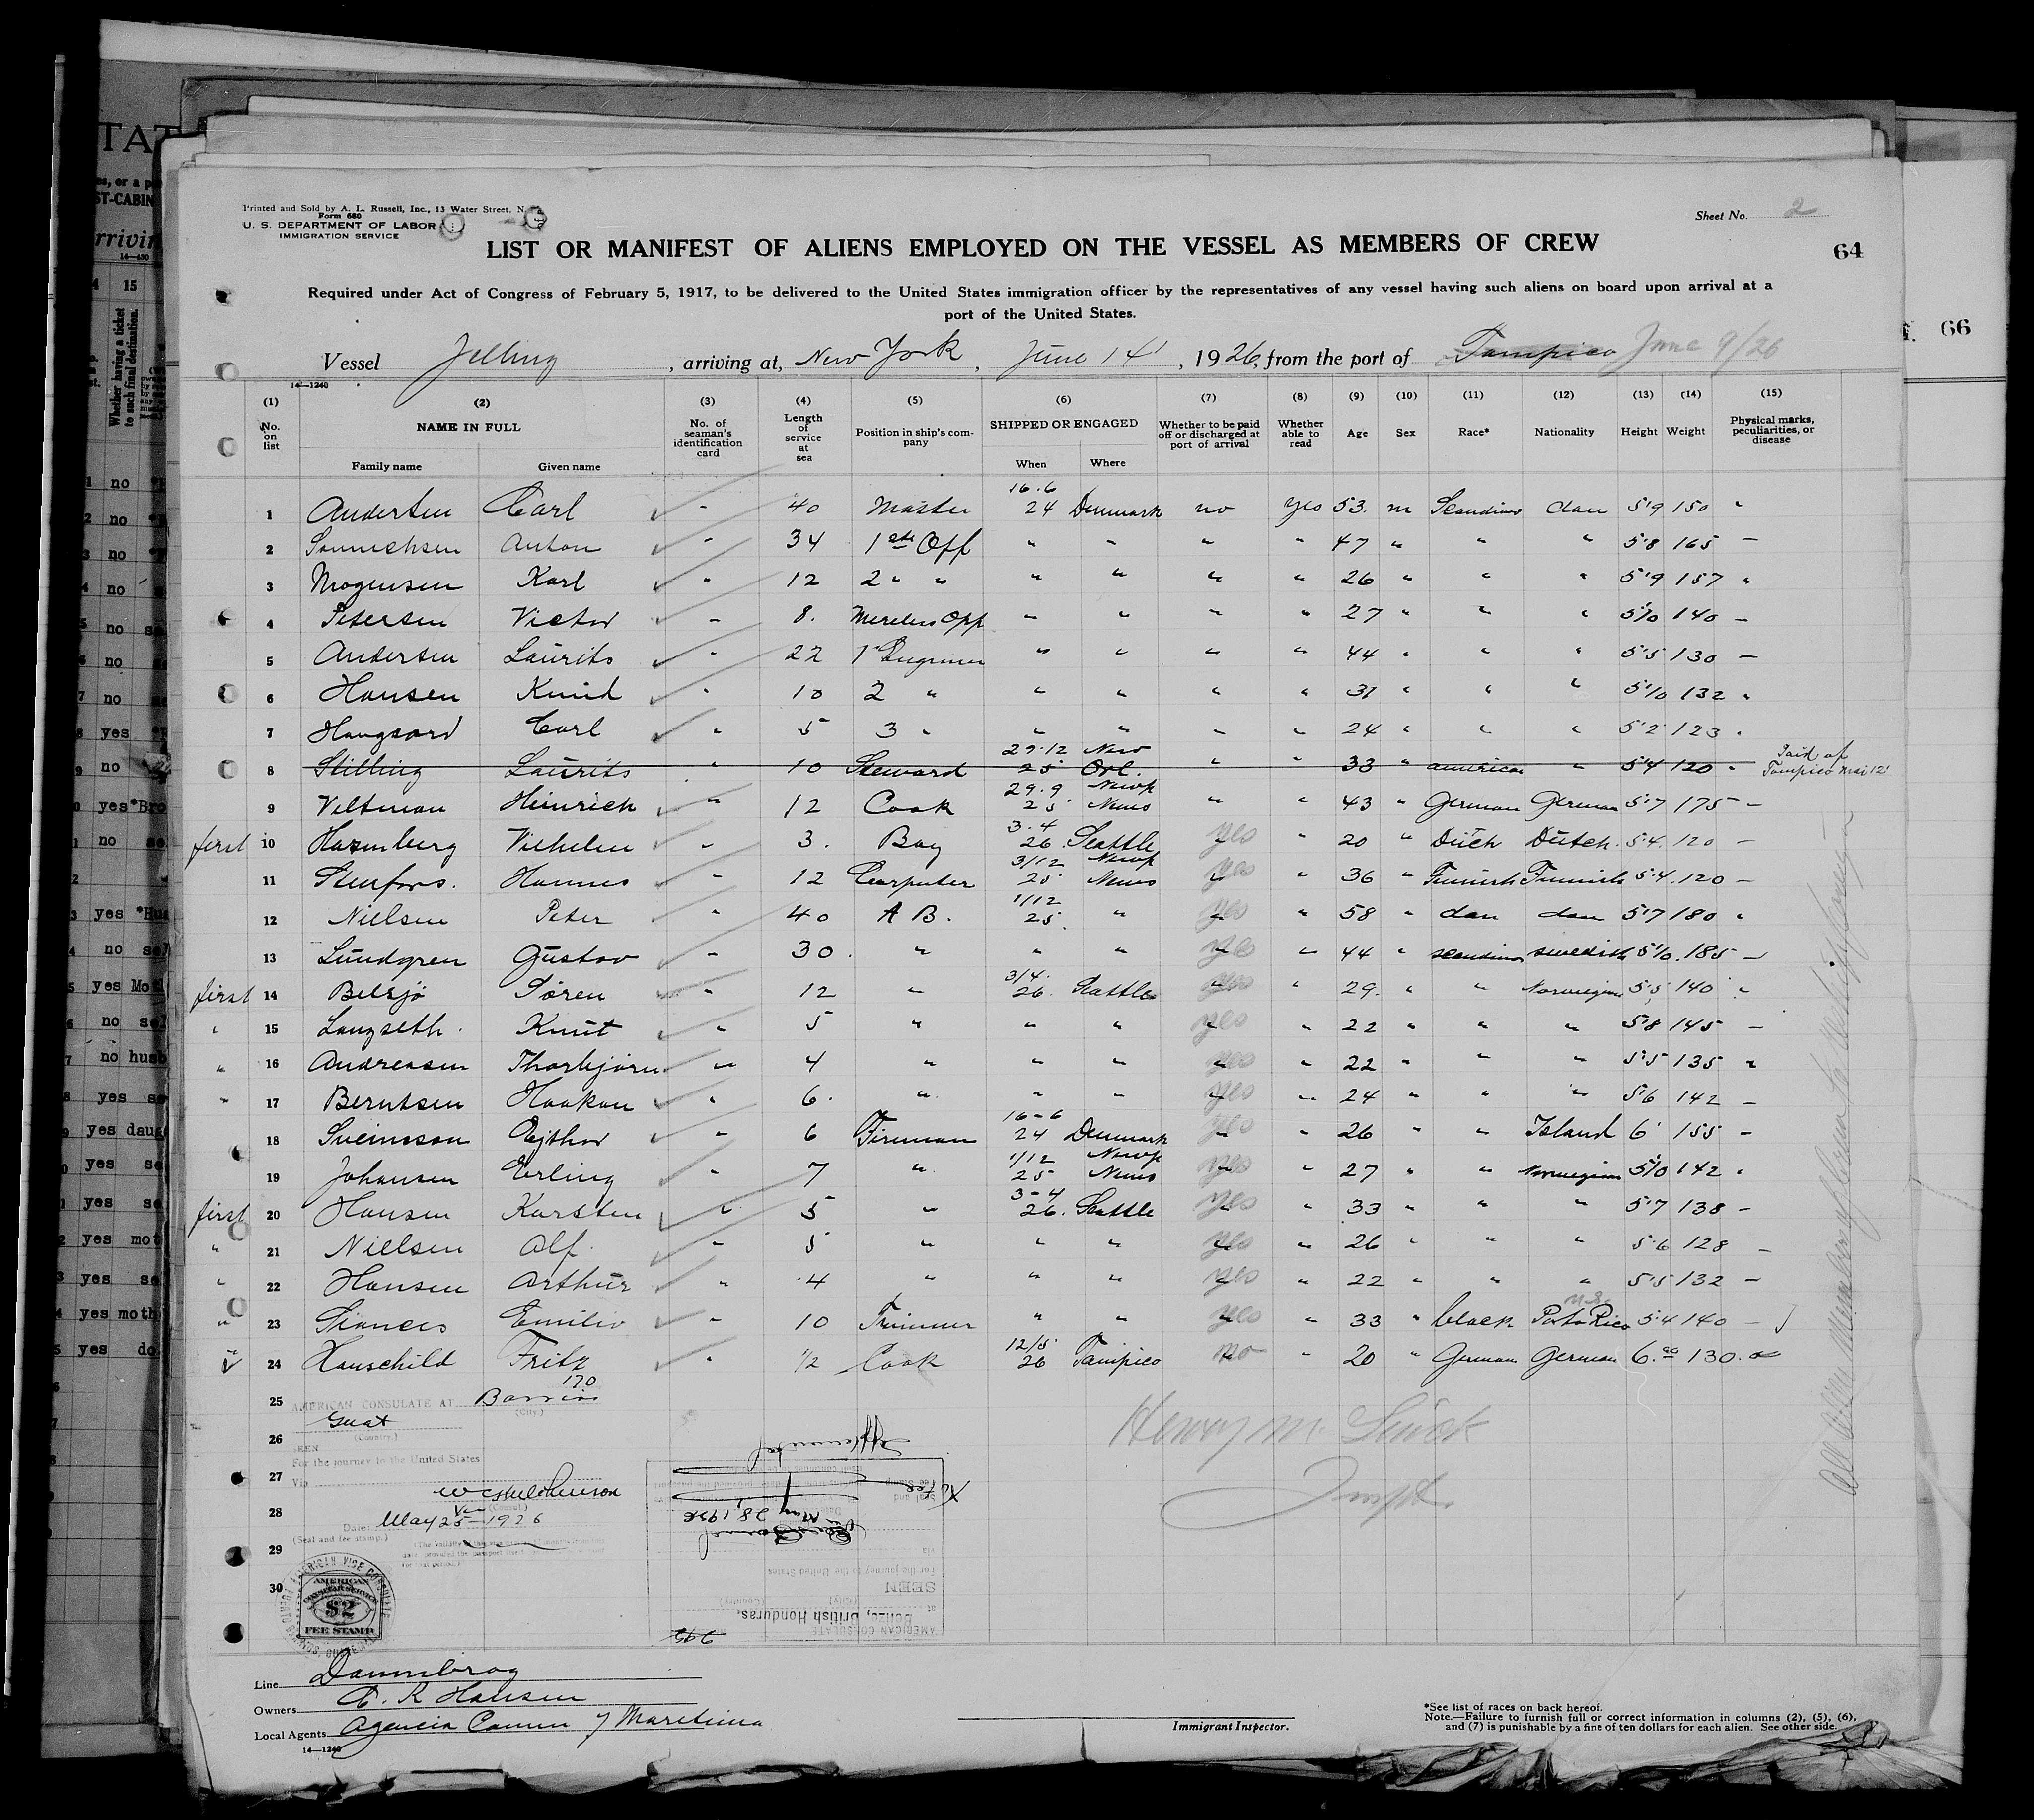 Printed and Sold by A. L. Russell, Inc., 13 Water Street, N.
Form 680
U. S. DEPARTMENT OF LABOR
IMMIGRATION SERVICE
Sheet No. 2
64
LIST OR MANIFEST OF ALIENS EMPLOYED ON THE VESSEL AS MEMBERS OF CREW
Required under Act of Congress of February 5, 1917, to be delivered to the United States immigration officer by the representatives of any vessel having such aliens on board upon arrival at a
port of the United States.
Vessel Jelling, arriving at, New York, June 14, 1926, from the port of Tampico June 9/26
14—1240
(1) (2) (3) (4) (5) (6) (7) (8) (9) (10) (11) (12) (13) (14) (15)
No. on list NAME IN FULL No. of seaman's identification card Length of service at sea Position in ship's company SHIPPED OR ENGAGED Whether to be paid off or discharged at port of arrival Whether able to read Age Sex Race* Nationality Height Weight Physical marks, peculiarities, or disease
Family name Given name When Where
1 Andersen Carl " 40 Master 16.6 24 Denmark no yes 53 m Scandinav dan 5'9 150 "
2 Sonnichsen Anton " 34 1st Off " " " " 47 " " " 5'8 165 —
3 Mogensen Karl " 12 2 " " " " " " 26 " " " 5'9 157 "
4 Petersen Victor — 8. " " " " 27 " " " 5'10 140 —
5 Andersen Laurits " 22 1 " " " " 44 " " " 5'5 130 —
6 Hansen Knud " 10 2 " " " " " 31 " " " 5'10 132 "
7 Haugaard Carl " 5 3 " " " " " 24 " " " 5'2 123 "
8 Stilling Laurits " 10 Steward 29.12 25 New Orl. " " 33 " american " 5'4 120 " Paid of Tampico Mai 12
9 Veltman Heinrich " 12 Cook 29.9 25 Newp News " " 43 " German German 5'7 175 —
first 10 Hazenberg Vilhelm " 3. Boy 3.4 26 Seattle yes " 20 " Dutch Dutch. 5'4. 120 —
11 Stenfors. Hannes " 12 Carpenter 3/12 25 Newp News yes " 36 " Finnish Finnish 5'4. 120 —
12 Nielsen Peter " 40 A B. 1/12 25 " yes " 58 " dan dan 5'7 180 "
13 Lundgren Gustav " 30. " " " yes " 44 " scandinav swedish 5'10. 185 —
first 14 Belsjö Sören " 12 " 3/4. 26. Seattle yes " 29. " " Norwegian 5'5 140 "
" 15 Langseth Knut " 5 " " " yes " 22 " " " 5'8 145 —
" 16 Andreasen Thorbjörn " 4 " " " yes " 22 " " " 5'5 135 "
" 17 Berntsen Haakon " 6. " " " yes " 24 " " " 5'6 142 —
18 Sveinsson " 6 Fireman 16-6 24 Denmark yes " 26 " " Island 6' 155 —
19 Johansen Erling " 7 " 1/12 25 Newp News yes " 27 " " Norwegian 5'10 142 "
first 20 Hansen Karsten " 5 " 3-4 26. Seattle yes " 33 " " " 5'7 138 —
" 21 Nielsen Alf. " 5 " " " yes " 26 " " " 5'6 128 —
" 22 Hansen Arthur " 4 " " " yes " 22 " " " 5'5 132 —
" 23 Emilio " 10 Trimmer " " yes " 33 " black U.S. Porto Rico 5'4 140 —
" 24 Hauschild Fritz " ½ Cook 12/5 26 Tampico no " 20 " German German 6.00 130.
25
26
27
28
29
30
170
AMERICAN CONSULATE AT Barrios
(City.)
Guat
(Country.)
SEEN
For the journey to the United States
Via
Vice (Consul.)
Date: May 25 - 1926
(Seal and fee stamp.)
AMERICAN VICE CONSULATE
PUERTO BARRIOS, GUATEMALA
AMERICAN CONSULAR SERVICE
$2
FEE STAMP
AMERICAN CONSULATE
at Belize, British Honduras.
(City) (Country)
SEEN
For the journey to the United States
Via
Vice Consul
Date May 28, 1926
Seal and Fee Stamp
No fee
Henry M.
Insptr.
Line Dannebrog
Owners C. K Hansen
Local Agents Agencia Comm y Maritima
14—1240
Immigrant Inspector.
*See list of races on back hereof.
Note.—Failure to furnish full or correct information in columns (2), (5), (6),
and (7) is punishable by a fine of ten dollars for each alien. See other side.
66